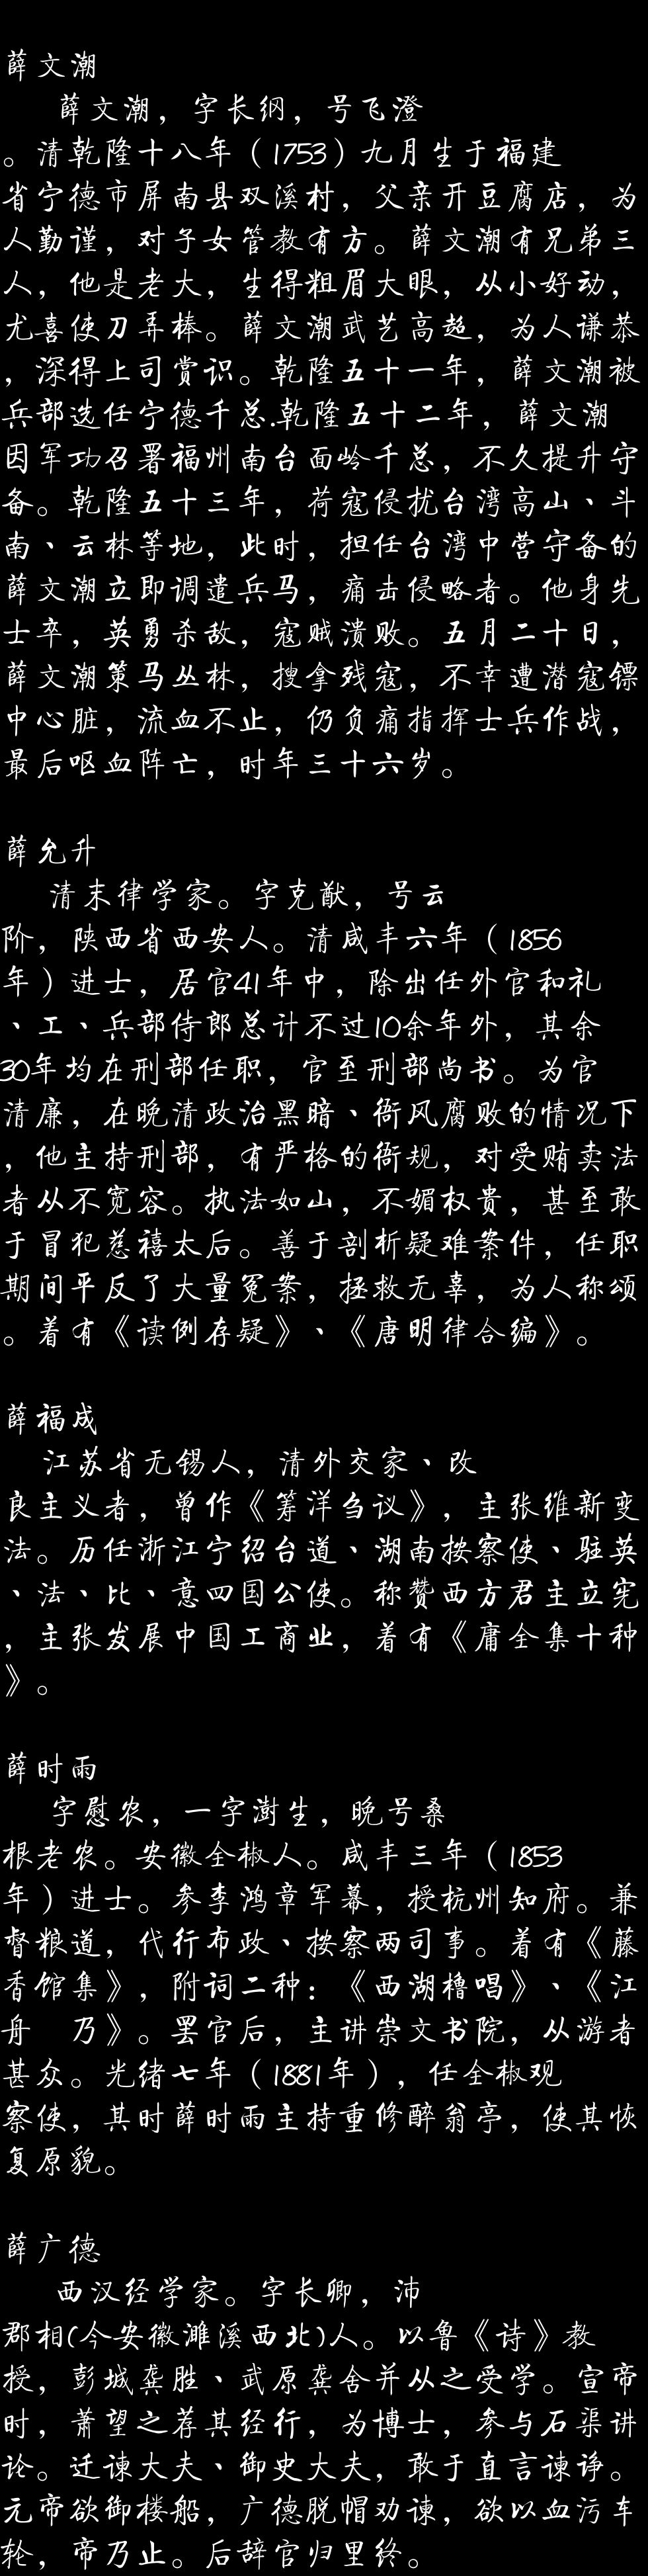 薛文潮
薛文潮，字长纲，号飞澄
。清乾隆十八年（1753）九月生于福建
省宁德市屏南县双溪村，父亲开豆腐店，为
人勤谨，对子女管教有方。薛文潮有兄弟三
人，他是老大，生得粗眉大眼，从小好动，
尤喜使刀弄棒。薛文潮武艺高超，为人谦恭
，深得上司赏识。乾隆五十一年，薛文潮被
兵部选任宁德千总.乾隆五十二年，薛文潮
因军功召署福州南台面岭千总，不久提升守
备。乾隆五十三年，荷寇侵扰台湾高山、斗
南、云林等地，此时，担任台湾中营守备的
薛文潮立即调遣兵马，痛击侵略者。他身先
士卒，英勇杀敌，寇贼溃败。五月二十日，
薛文潮策马丛林，搜拿残寇，不幸遭潜寇镖
中心脏，流血不止，仍负痛指挥士兵作战，
最后呕血阵亡，时年三十六岁。
薛允升
清末律学家。字克猷，号云
阶，陕西省西安人。清咸丰六年（1856
年）进士，居官41年中，除出任外官和礼
、工、兵部侍郎总计不过10余年外，其余
30年均在刑部任职，官至刑部尚书。为官
清廉，在晚清政治黑暗、衙风腐败的情况下
，他主持刑部，有严格的衙规，对受贿卖法
者从不宽容。执法如山，不媚权贵，甚至敢
于冒犯慈禧太后。善于剖析疑难案件，任职
期间平反了大量冤案，拯救无辜，为人称颂
。着有《读例存疑》、《唐明律合编》。
薛福成
江苏省无锡人，清外交家、改
良主义者，曾作《筹洋刍议》，主张维新变
法。历任浙江宁绍台道、湖南按察使、驻英
、法、比、意四国公使。称赞西方君主立宪
，主张发展中国工商业，着有《庸全集十种
》。
薛时雨
字慰农，一字澍生，晚号桑
根老农。安徽全椒人。咸丰三年（1853
年）进士。参李鸿章军幕，授杭州知府。兼
督粮道，代行布政、按察两司事。着有《藤
香馆集》，附词二种：《西湖橹唱》、《江
舟　乃》。罢官后，主讲崇文书院，从游者
甚众。光绪七年（1881年），任全椒观
察使，其时薛时雨主持重修醉翁亭，使其恢
复原貌。
薛广德
西汉经学家。字长卿，沛
郡相(今安徽濉溪西北)人。以鲁《诗》教
授，彭城龚胜、武原龚舍并从之受学。宣帝
时，萧望之荐其经行，为博士，参与石渠讲
论。迁谏大夫、御史大夫，敢于直言谏诤。
元帝欲御楼船，广德脱帽劝谏，欲以血污车
轮，帝乃止。后辞官归里终。